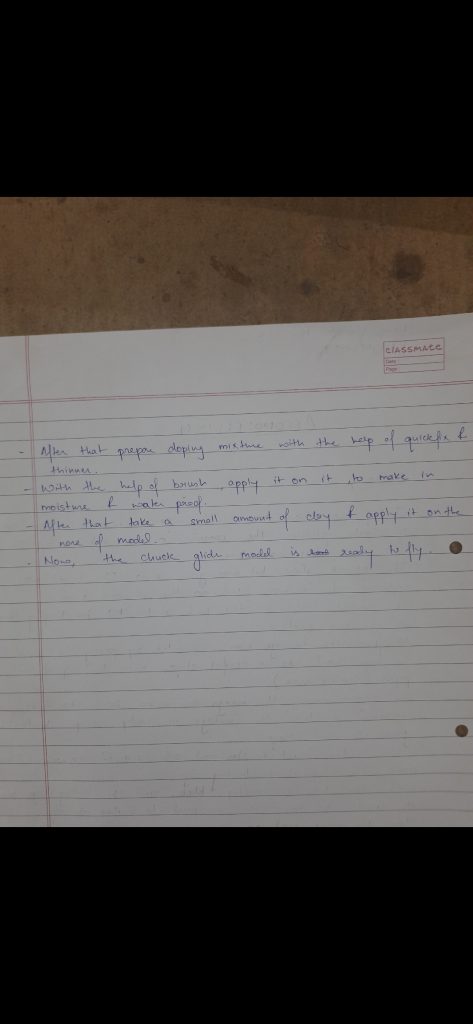 classmate
Date
Page
- After that prepare doping mixture with the help of quickfix &
thinner.
- With the help of brush, apply it on it, to make in
moisture & water proof.
- After that take a small amount of clay & apply it on the
nose of model.
- Now, the chuck glide model is ready to fly.